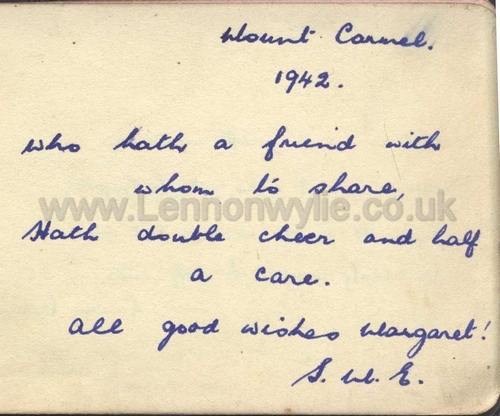 Mount Carmel.
1942.
Who hath a friend with
whom to share,
www.Lennonwylie.co.uk
Hath double cheer and half
a care.
All good wishes Margaret!
S. W. E.